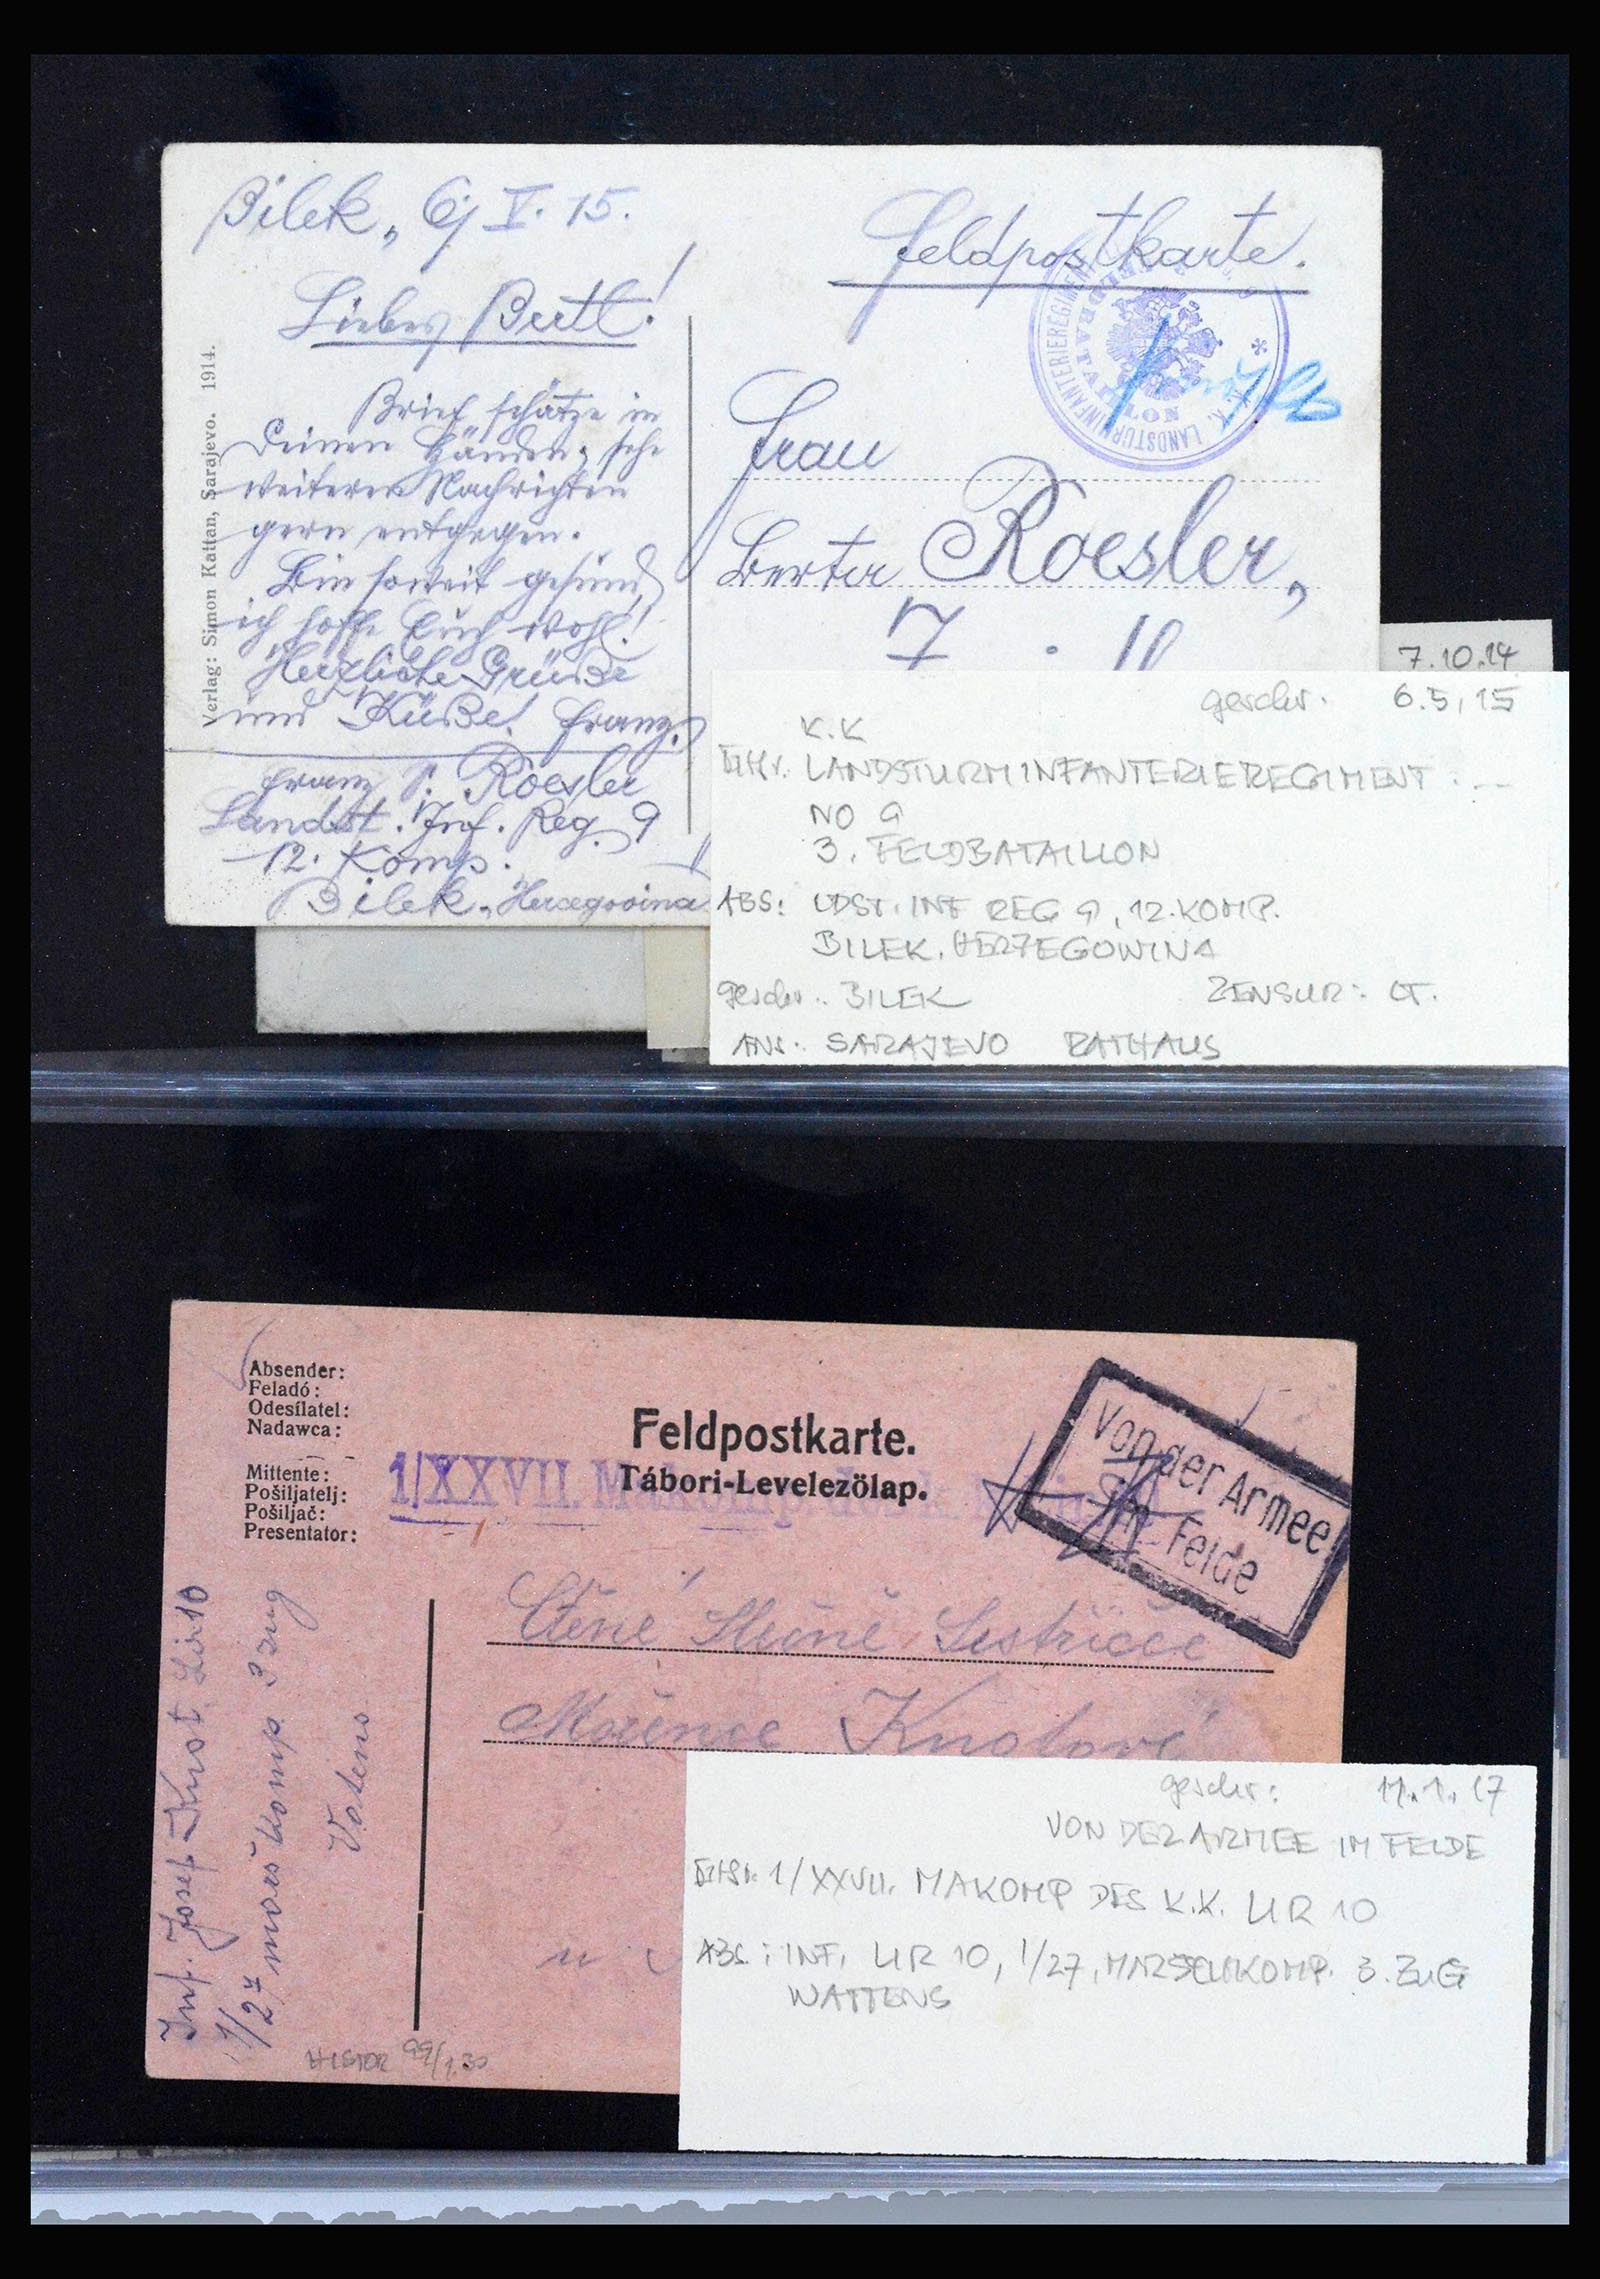 Bilek, 6/V. 15.
Liebes Bertl!
Brief schätze in
Deinen Händen, sehe
weiteren Nachrichten
gern entgegen.
Bin soweit gesund,
ich hoffe Euch wohl!
Herzliche Grüße
und Küße! Franz.
Franz Roesler
Landst. Inf. Reg. 9
12. Komp.
Bilek, Hercegovina
Verlag: Simon Kattan, Sarajevo. 1914.
Feldpostkarte.
K.K. LANDSTURMINFANTERIEREGIMENT
Frau
Berta Roesler,
7.10.14
geschr. 6.5,15
K.K
LANDSTURMINFANTERIEREGIMENT
NO 9
3. FELDBATAILLON
ABS: LDST. INF REG 9, 12. KOMP.
BILEK, HERZEGOWINA
geschr.: BILEK ZENSUR: LT.
ANS.: SARAJEVO RATHAUS
Absender:
Feladó:
Odesílatel:
Nadawca:
Mittente:
Pošiljatelj:
Pošiljač:
Presentator:
Feldpostkarte.
Tábori-Levelezölap.
1/XXVII. Makomp
Von der Armee
im Felde
Ctěné Slečně Sestřičce
Mařence Knotové
Inf. Josef Knot Lir 10
1/27 marš Komp. 3 zug
Vatens
HISTOR 99/1.30
geschr: 11.1.17
VON DER ARMEE IM FELDE
1/XXVII. MAKOMP DES K.K. LIR 10
ABS.: INF. LIR 10, 1/27, MARSCHKOMP. 3. ZUG
WATTENS